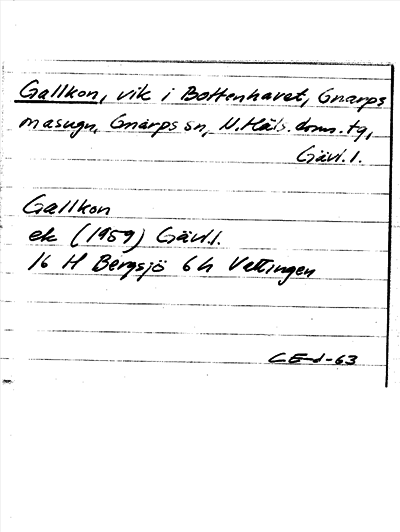 Gallkon, vik i Bottenhavet, Gnarps
masugn, Gnarps sn, N. Häls. doms. tg,
Gävl. l.
Gallkon
ek (1959) Gävl.l.
16 H Bergsjö 6 h Vettingen
CEd-63